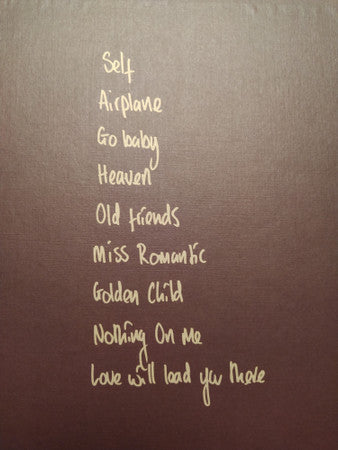 Self
Airplane
Go baby
Heaven
Old friends
Miss Romantic
Golden Child
Nothing On me
Love will lead you there